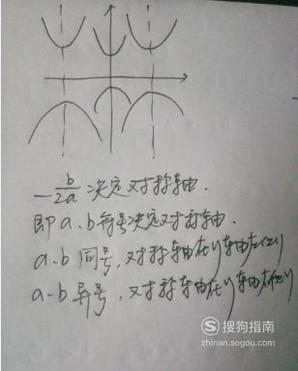 -b/2a 决定对称轴.
即 a、b 符号决定对称轴.
a、b 同号, 对称轴在y轴左侧
a、b 异号, 对称轴在y轴右侧
搜狗指南
zhinan.sogou.com